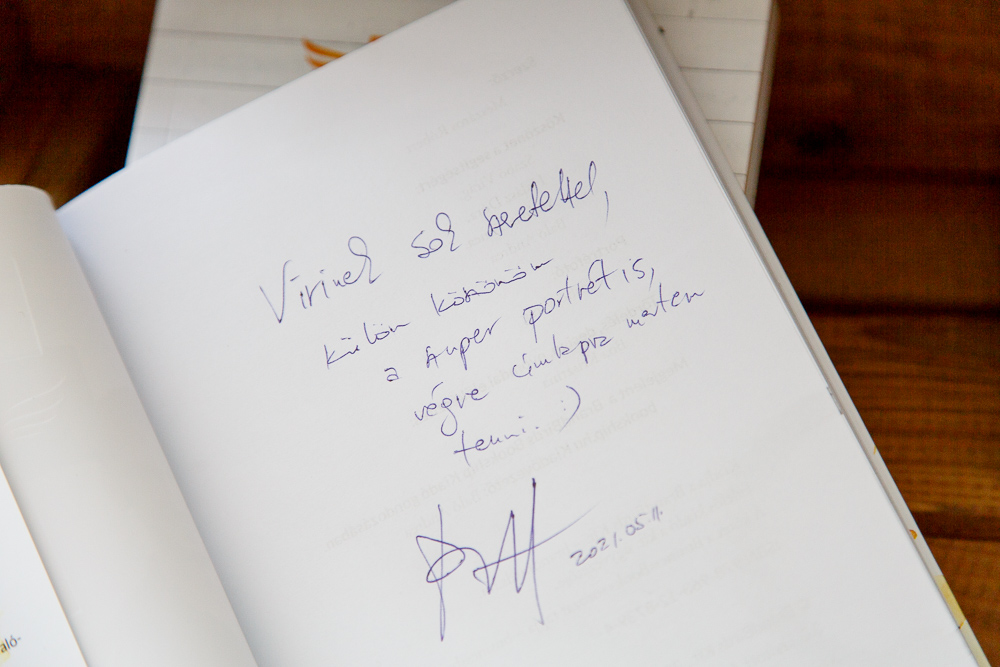 Virinek sok szeretettel,
külön köszönöm
a szuper portrét is,
végre címlapra mertem
tenni. :)
2021.05.11.
aló-